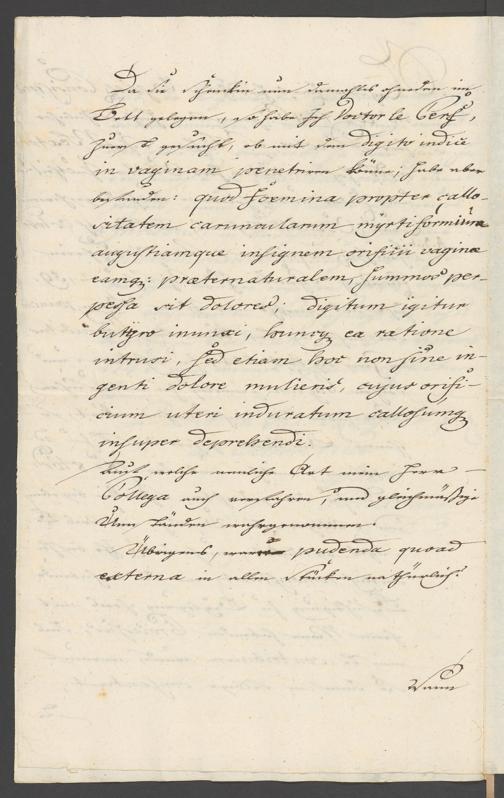 Da die Schenkin nun damahls ohnedem im
Bett gelegen, so habe Ich Doctor le Cerf,
zuerst gesucht, ob mit dem digito indice
in vaginam penetriren könne; habe aber
befunden: quod foemina propter callo-
sitatem caruncularum myrtiformium
angustiamque insignem orificii vaginæ
eamq: præternaturalem, summos per-
pessa sit dolores; digitum igitur
butyro inunxi, huncq ea ratione
intrusi, sed etiam hoc non sine in-
genti dolore mulieris, cujus orifi-
cium uteri induratum callosumq
insuper deprehendi.
Auf welche nemliche Art mein Herr
Collega auch verfahren, und gleichmäßige
Umstände wahrgenommen.
Übrigens, waren pudenda quoad
externa in allen Stücken natürlich.
Wann